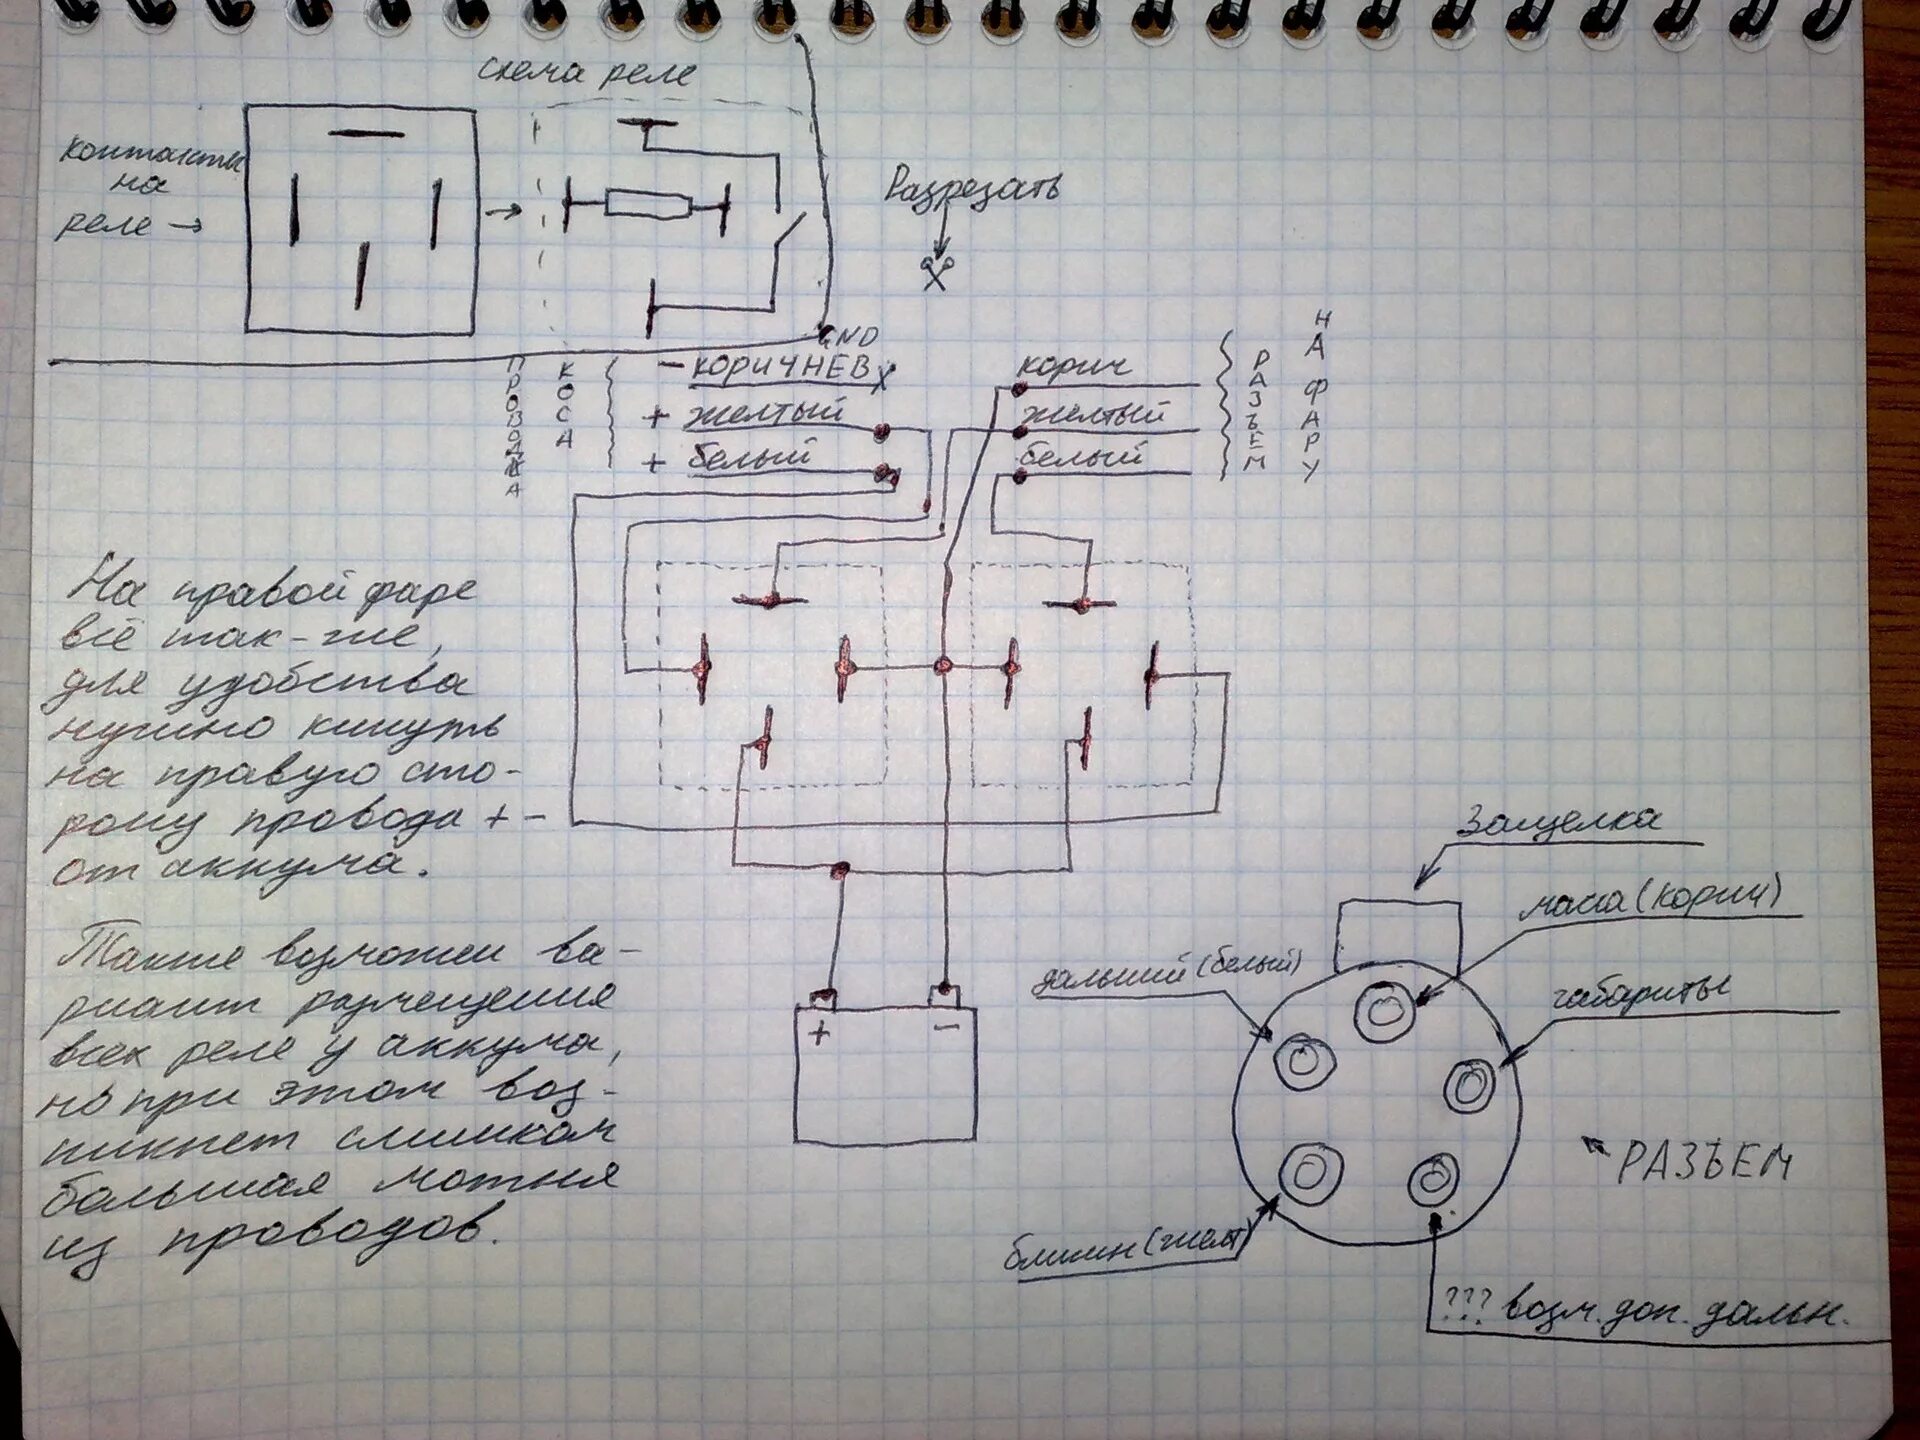 схема реле
контакты
на
реле →
Разрезать
GND
ПРОВОДКА
КОСА
- КОРИЧНЕВ
+ желтый
+ белый
корич
желтый
белый
РАЗЪЕМ
НА ФАРУ
На правой фаре
всё так-же,
для удобства
нужно кинуть
на правую сто-
рону провода + -
от аккума.
Также возможен ва-
риант размещения
всех реле у аккума,
но при этом воз-
никнет слишком
большая мотня
из проводов.
+
-
Защелка
масса (корич)
дальний (белый)
габариты
РАЗЪЕМ
ближн (желт)
??? возм. доп. дальн.